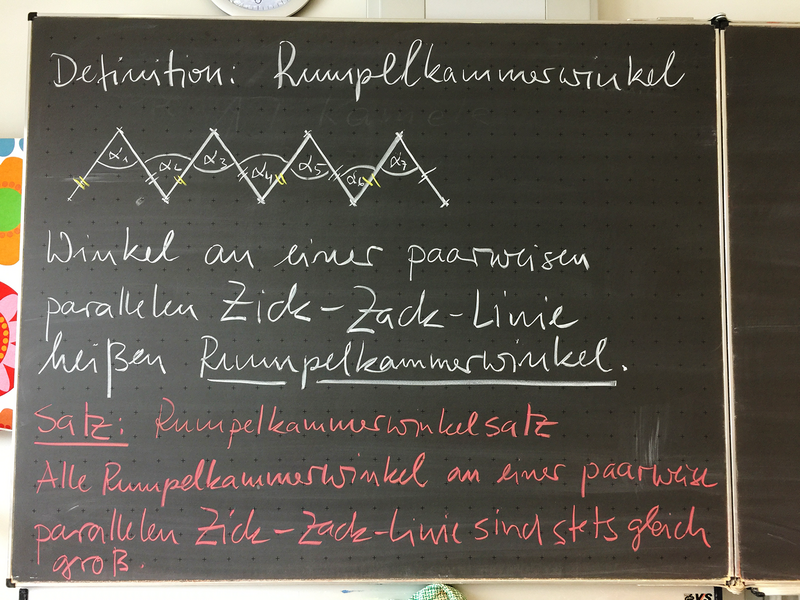 Definition: Rumpelkammerwinkel
α1 α2 α3 α4 α5 α6 α7
Winkel an einer paarweisen
parallelen Zick-Zack-Linie
heißen Rumpelkammerwinkel.
Satz: Rumpelkammerwinkelsatz
Alle Rumpelkammerwinkel an einer paarweise
parallelen Zick-Zack-Linie sind stets gleich
groß.